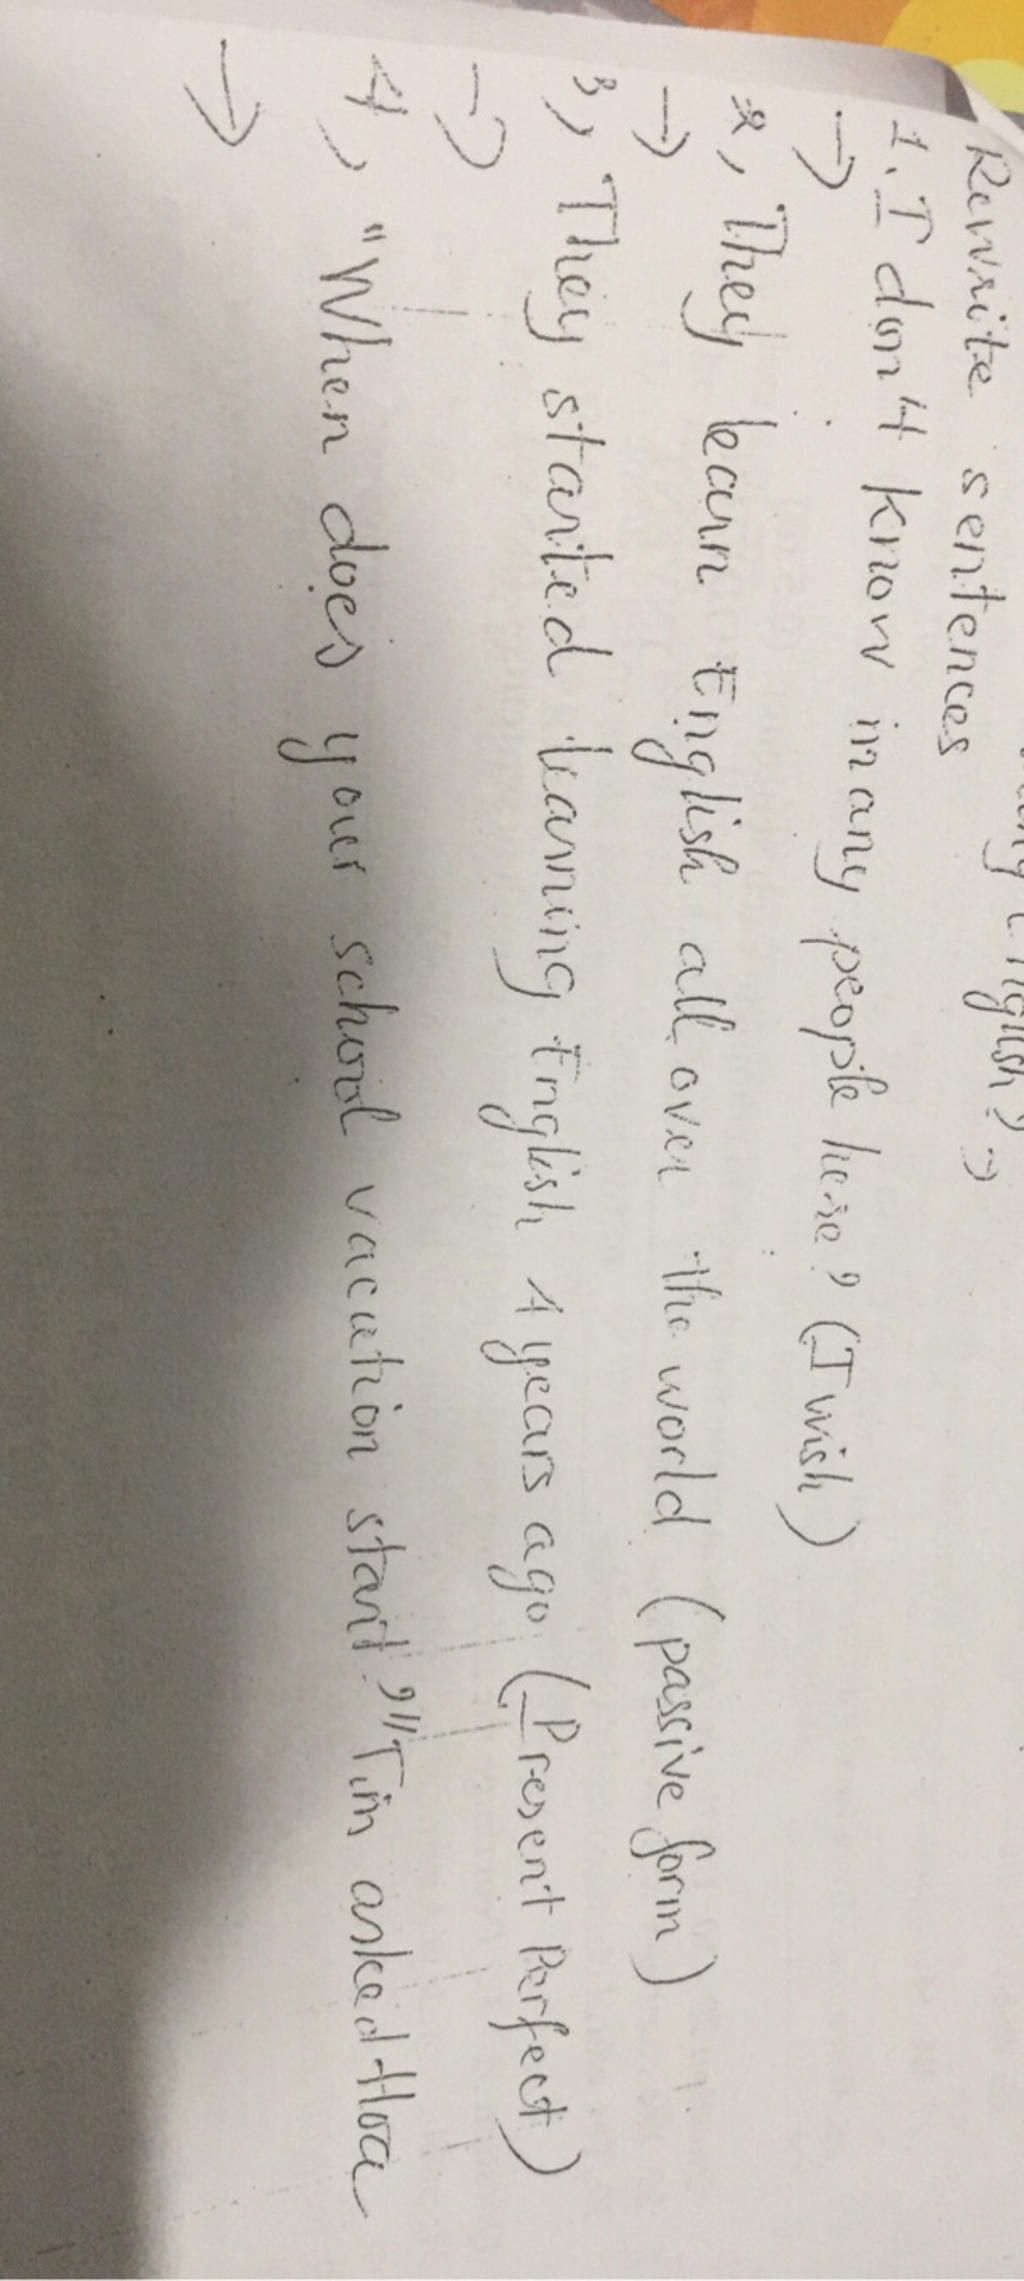 English? →
Rewrite sentences
1. I don't know many people here? (I wish)
→
2, They learn English all over the world (passive form)
→
3, They started learning English 4 years ago (Present Perfect)
→
4, "When does your school vacation start?" Tim asked Hoa
→